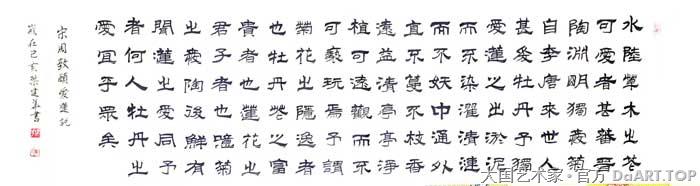 水陸草木之花
可愛者甚蕃晉
陶淵明獨愛菊
自李唐來世人
甚愛牡丹予獨
愛蓮之出淤泥
而不染濯清漣
而不妖中通外
直不蔓不枝香
遠益清亭亭淨
植可遠觀而不
可褻玩焉予謂
菊花之隱逸者
也牡丹花之富
貴者也蓮花之
君子者也噫菊
之愛陶後鮮有
聞蓮之愛同予
者何人牡丹之
愛宜乎眾矣
宋周敦頤愛蓮説
歲在己亥 建華書
大国艺术家·官方 DdART.TOP